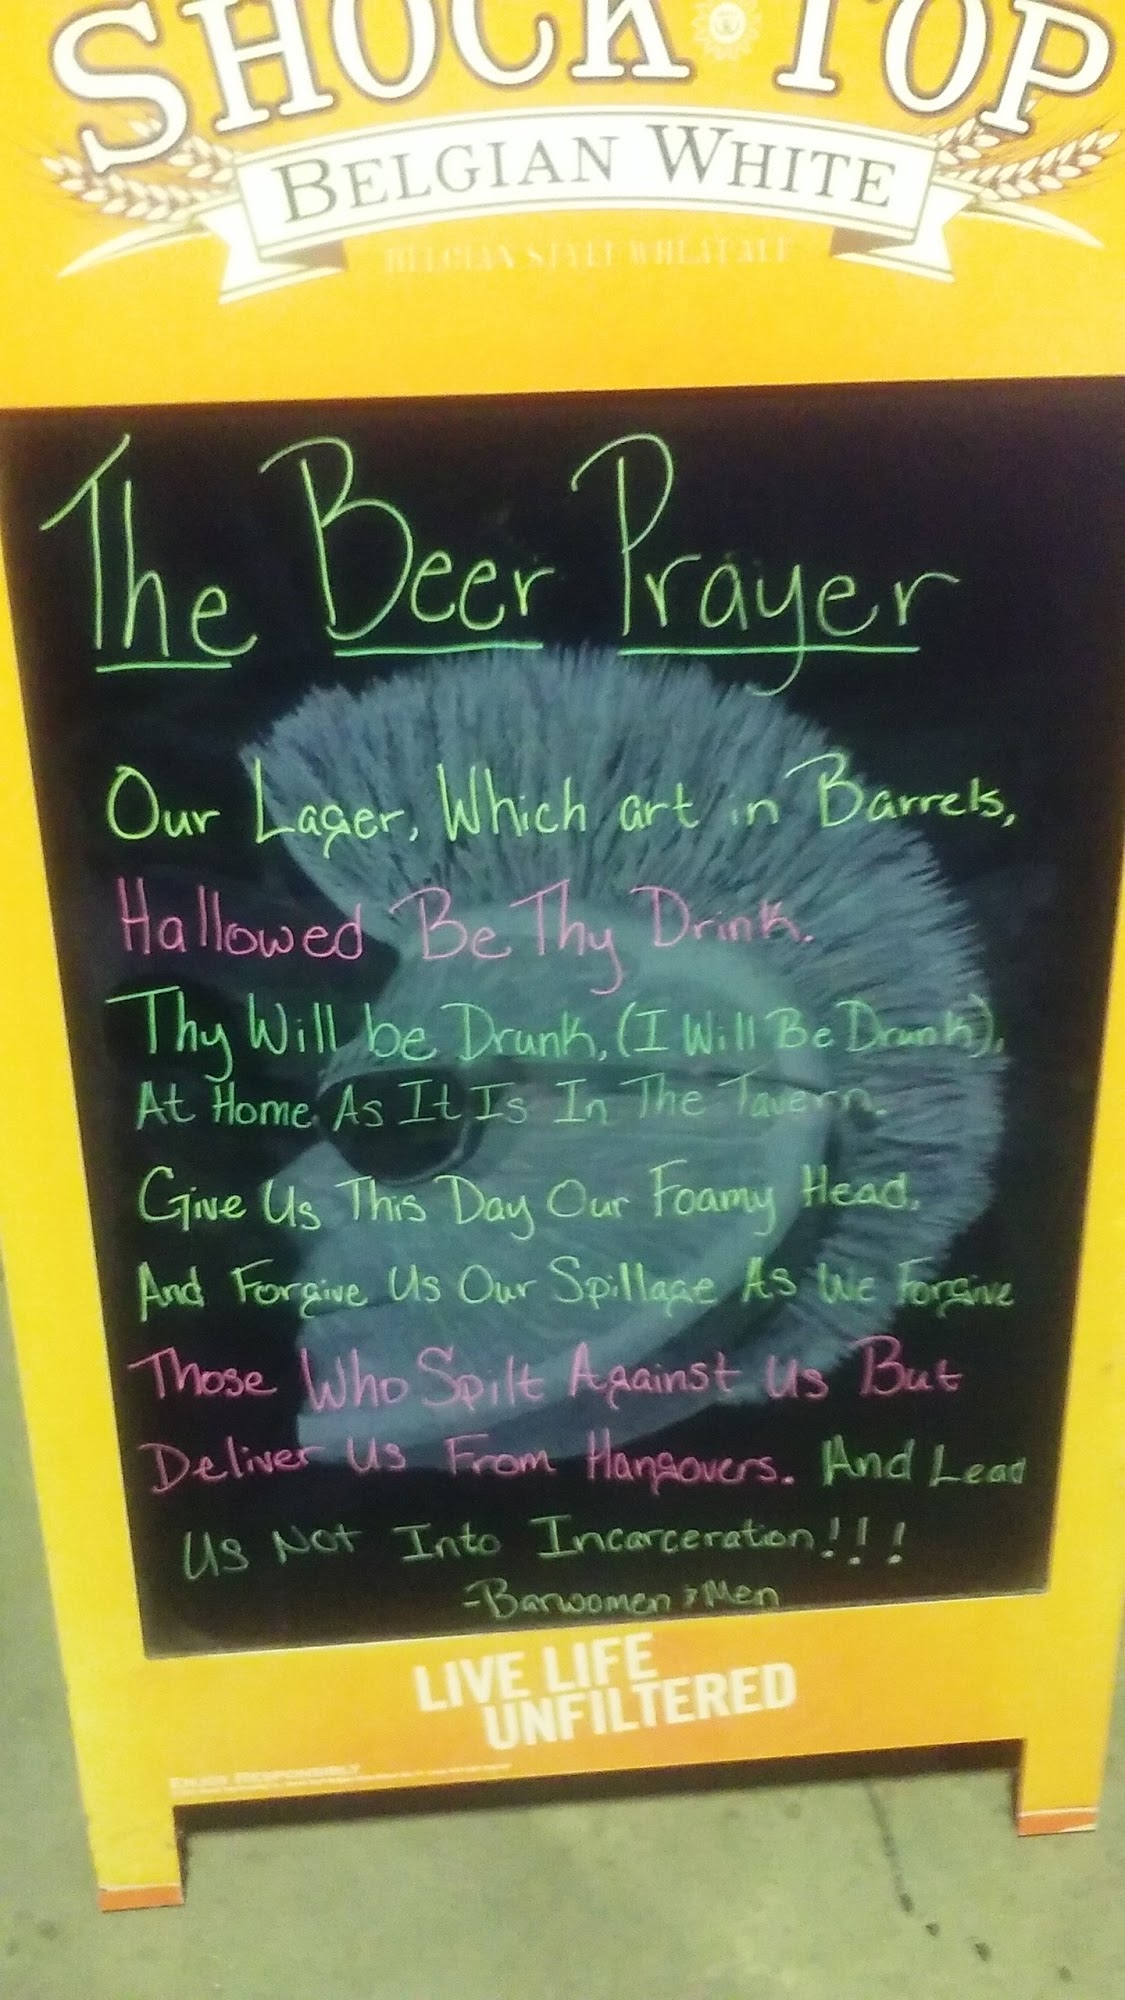 SHOCK TOP
BELGIAN WHITE
BELGIAN STYLE WHEAT ALE
The Beer Prayer
Our Lager, Which art in Barrels,
Hallowed Be Thy Drink.
Thy Will be Drunk, (I Will Be Drunk),
At Home As It Is In The Tavern.
Give Us This Day Our Foamy Head,
And Forgive Us Our Spillage As We Forgive
Those Who Spilt Against Us But
Deliver Us From Hangovers. And Lead
Us Not Into Incarceration!!!
-Barwomen & Men
LIVE LIFE
UNFILTERED
ENJOY RESPONSIBLY